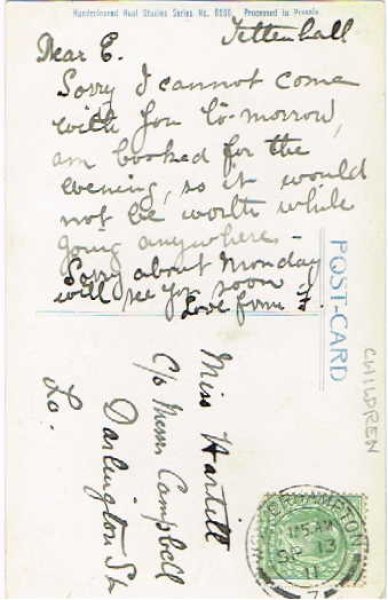 Hundredweel Real Studies Series No. Processed in Prussia.
Tettenhall
Dear E.
Sorry I cannot come
with you to-morrow,
am booked for the
evening, so it would
not be worth while
going anywhere –
Sorry about Monday
will see you soon
Love from
POST-CARD
CHILDREN
Miss Hartill
C/o Messrs Campbell
Darlington St
Lo.
SP 13
11